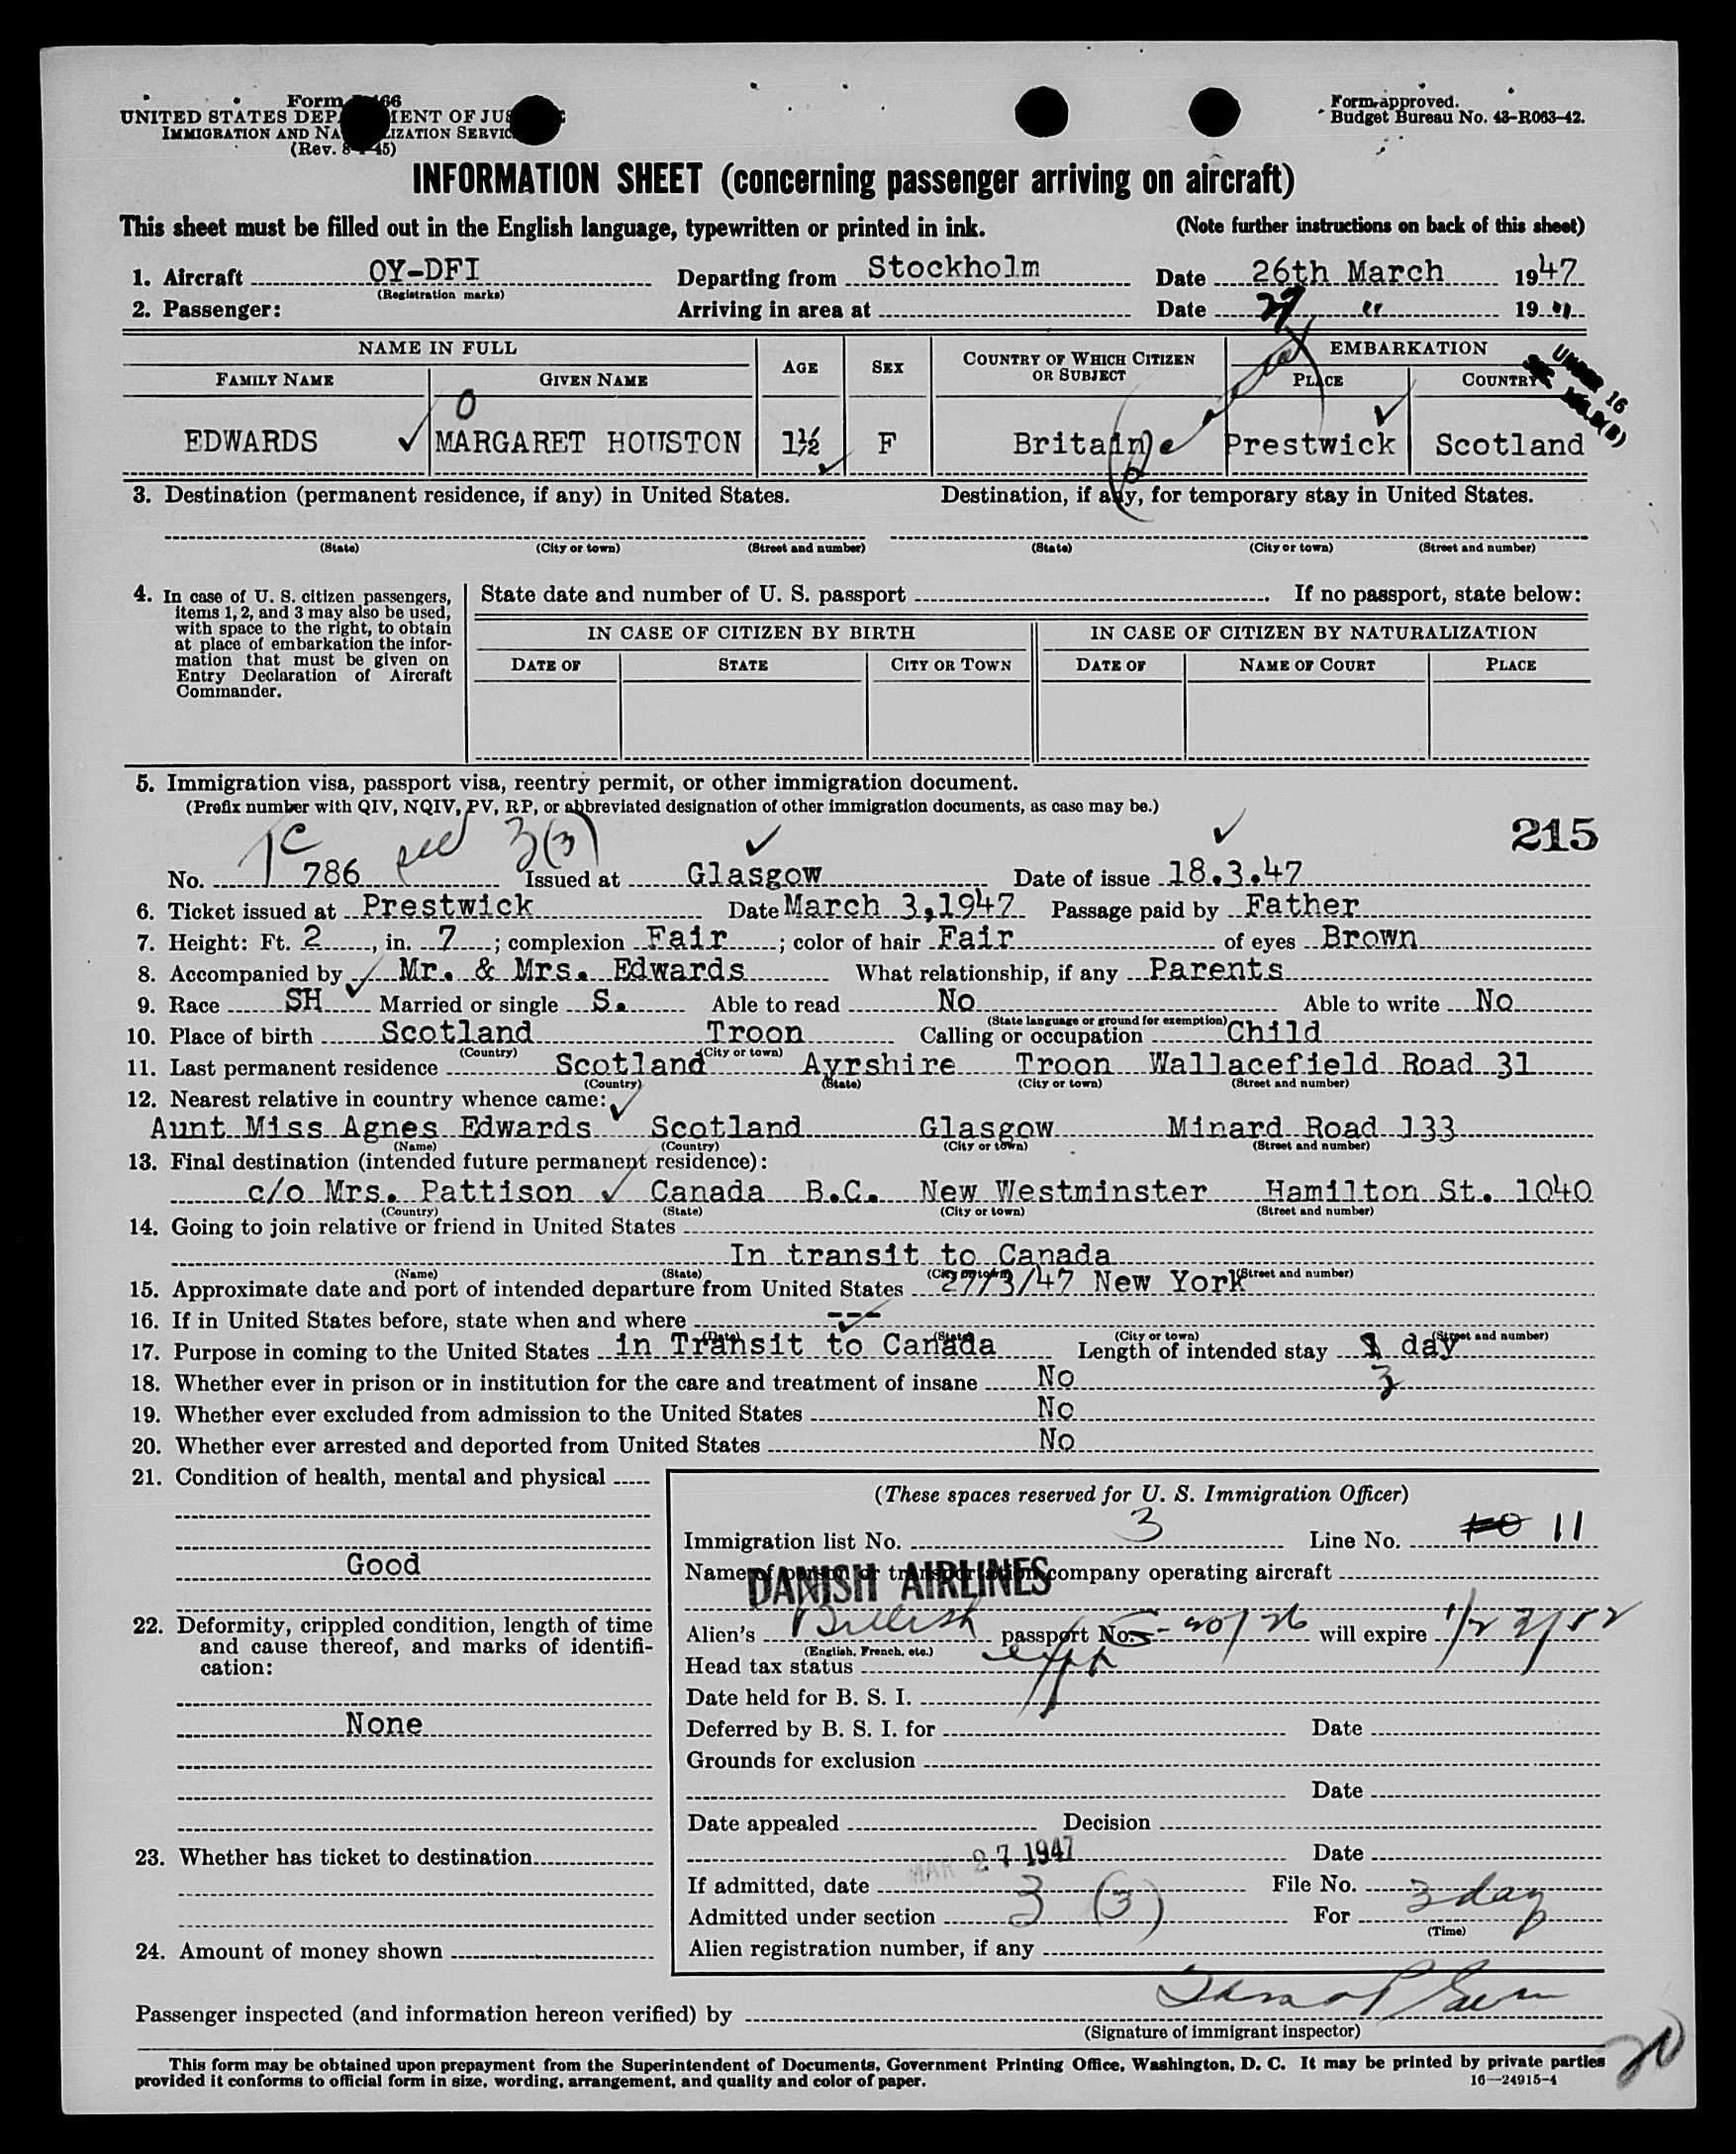 Form I-466
UNITED STATES DEPARTMENT OF JUSTICE
IMMIGRATION AND NATURALIZATION SERVICE
(Rev. 8-1-45)
Form approved.
Budget Bureau No. 43-R063-42.
INFORMATION SHEET (concerning passenger arriving on aircraft)
This sheet must be filled out in the English language, typewritten or printed in ink. (Note further instructions on back of this sheet)
1. Aircraft OY-DFI Departing from Stockholm Date 26th March 1947
(Registration marks)
2. Passenger: Arriving in area at Date 27 " 19 "
NAME IN FULL AGE SEX COUNTRY OF WHICH CITIZEN OR SUBJECT EMBARKATION
FAMILY NAME GIVEN NAME PLACE COUNTRY
UNDER 16
0
EDWARDS MARGARET HOUSTON 1½ F Britain Prestwick Scotland
3. Destination (permanent residence, if any) in United States. Destination, if any, for temporary stay in United States.
(State) (City or town) (Street and number) (State) (City or town) (Street and number)
4. In case of U. S. citizen passengers, items 1, 2, and 3 may also be used, with space to the right, to obtain at place of embarkation the information that must be given on Entry Declaration of Aircraft Commander.
State date and number of U. S. passport . If no passport, state below:
IN CASE OF CITIZEN BY BIRTH IN CASE OF CITIZEN BY NATURALIZATION
DATE OF STATE CITY OR TOWN DATE OF NAME OF COURT PLACE
5. Immigration visa, passport visa, reentry permit, or other immigration document.
(Prefix number with QIV, NQIV, PV, RP, or abbreviated designation of other immigration documents, as case may be.)
TC sec 3(3) 215
No. 786 Issued at Glasgow Date of issue 18.3.47
6. Ticket issued at Prestwick Date March 3, 1947 Passage paid by Father
7. Height: Ft. 2, in. 7; complexion Fair; color of hair Fair of eyes Brown
8. Accompanied by Mr. & Mrs. Edwards What relationship, if any Parents
9. Race SH Married or single S. Able to read No Able to write No
(State language or ground for exemption)
10. Place of birth Scotland Troon Calling or occupation Child
(Country) (City or town)
11. Last permanent residence Scotland Ayrshire Troon Wallacefield Road 31
(Country) (State) (City or town) (Street and number)
12. Nearest relative in country whence came:
Aunt Miss Agnes Edwards Scotland Glasgow Minard Road 133
(Name) (Country) (City or town) (Street and number)
13. Final destination (intended future permanent residence):
c/o Mrs. Pattison Canada B.C. New Westminster Hamilton St. 1040
(Country) (State) (City or town) (Street and number)
14. Going to join relative or friend in United States
In transit to Canada
(Name) (State) (City or town) (Street and number)
15. Approximate date and port of intended departure from United States 27/3/47 New York
16. If in United States before, state when and where ---
(Date) (State) (City or town) (Street and number)
17. Purpose in coming to the United States in Transit to Canada Length of intended stay 1 day
3
18. Whether ever in prison or in institution for the care and treatment of insane No
19. Whether ever excluded from admission to the United States No
20. Whether ever arrested and deported from United States No
21. Condition of health, mental and physical
Good
22. Deformity, crippled condition, length of time and cause thereof, and marks of identification:
None
23. Whether has ticket to destination
24. Amount of money shown
(These spaces reserved for U. S. Immigration Officer)
Immigration list No. 3 Line No. 10 11
Name of person or transportation company operating aircraft
DANISH AIRLINES
Alien's British passport No. will expire
(English, French, etc.)
Head tax status
Date held for B. S. I.
Deferred by B. S. I. for Date
Grounds for exclusion
Date
Date appealed Decision
Date
If admitted, date MAR 27 1947 File No.
Admitted under section 3 (3) For 3 day
(Time)
Alien registration number, if any
Passenger inspected (and information hereon verified) by
(Signature of immigrant inspector)
20
This form may be obtained upon prepayment from the Superintendent of Documents, Government Printing Office, Washington, D. C. It may be printed by private parties
provided it conforms to official form in size, wording, arrangement, and quality and color of paper. 16—24915-4